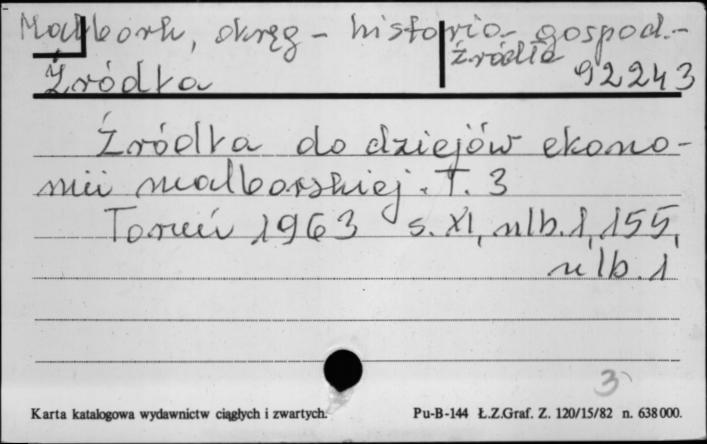 Malbork, okręg - historia gospod. -
źródła
Źródła 92243
Źródła do dziejów ekono-
mii malborskiej. T. 3
Toruń 1963 s. XI, nlb. 1, 155,
nlb. 1
3
Karta katalogowa wydawnictw ciągłych i zwartych. Pu-B-144 Ł.Z.Graf. Z. 120/15/82 n. 638000.